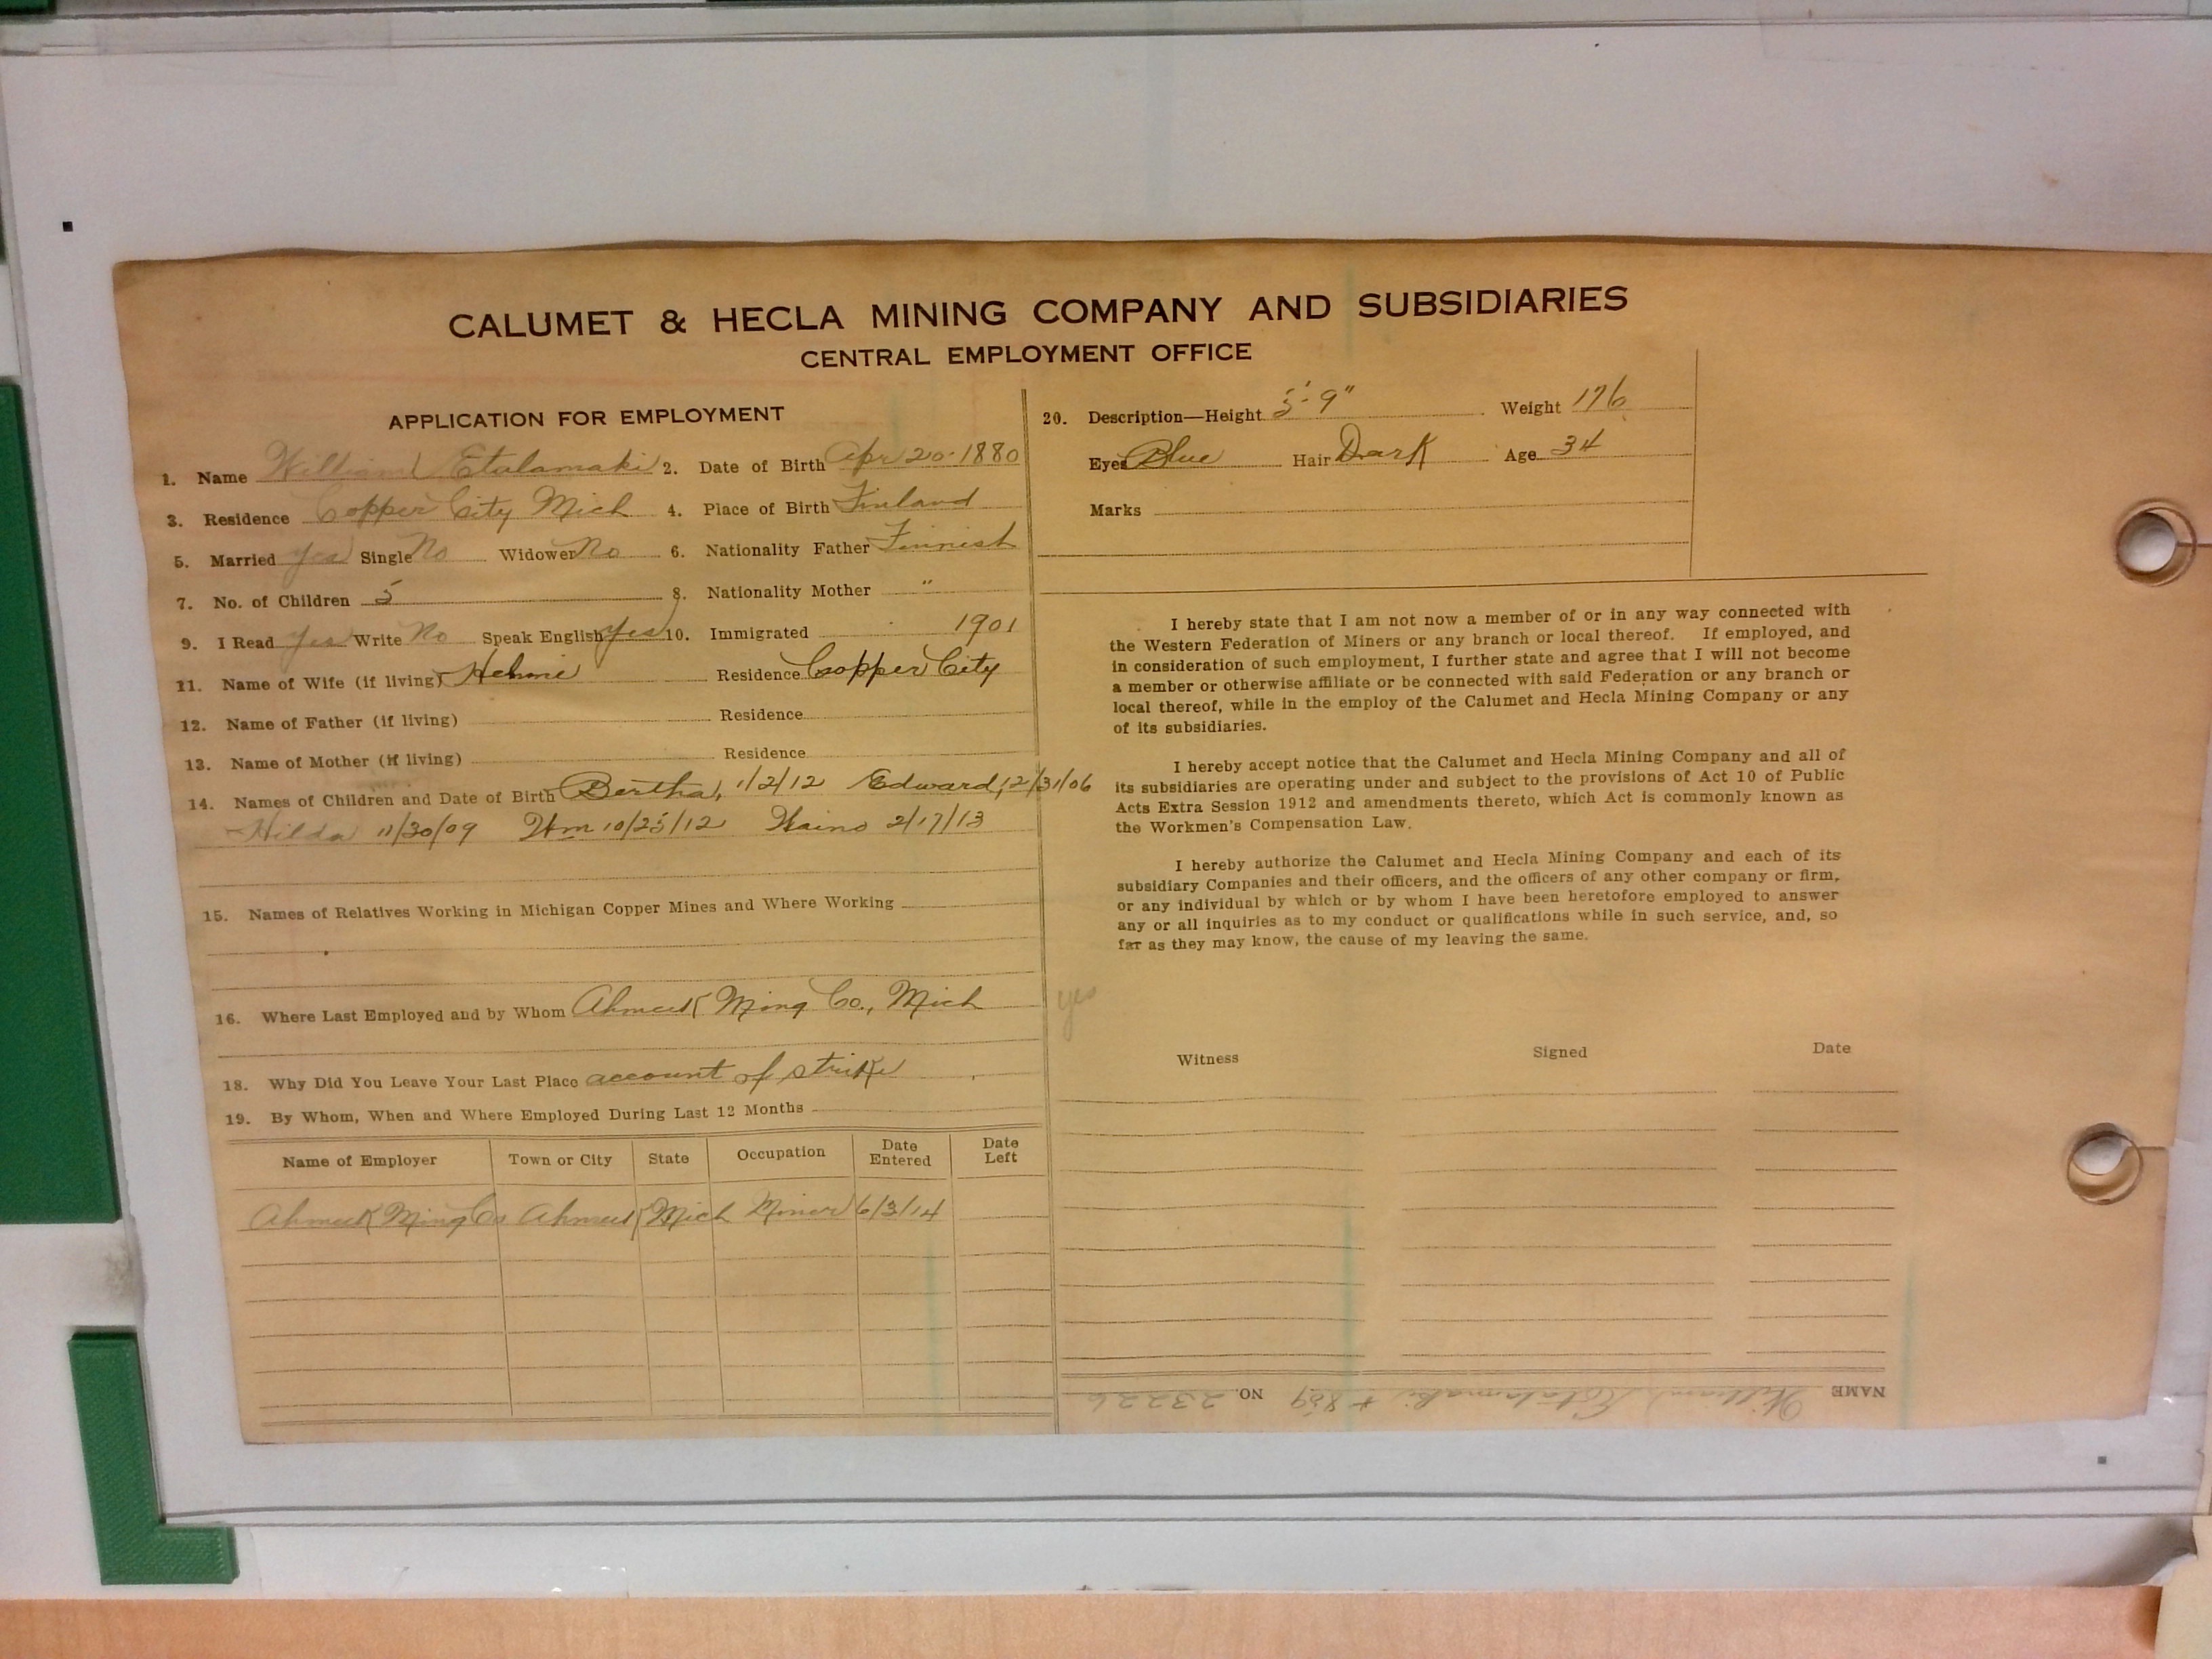 CALUMET & HECLA MINING COMPANY AND SUBSIDIARIES
CENTRAL EMPLOYMENT OFFICE
APPLICATION FOR EMPLOYMENT
1. Name William Etulamaki 2. Date of Birth Apr 20-1880
3. Residence Copper City Mich 4. Place of Birth Finland
5. Married Yes Single No Widower No 6. Nationality Father Finnish
7. No. of Children 5 8. Nationality Mother "
9. I Read Yes Write No Speak English Yes 10. Immigrated 1901
11. Name of Wife (if living) Helmi Residence Copper City
12. Name of Father (if living) Residence
13. Name of Mother (if living) Residence
14. Names of Children and Date of Birth Bertha, 1/2/12 Edward, 12/31/06
Hilda 11/30/09 Wm 10/25/12 Waino 2/17/13
15. Names of Relatives Working in Michigan Copper Mines and Where Working
16. Where Last Employed and by Whom Ahmeek Ming Co., Mich
18. Why Did You Leave Your Last Place account of strike
19. By Whom, When and Where Employed During Last 12 Months
Name of Employer Town or City State Occupation Date Entered Date Left
Ahmeek Ming Co Ahmeek Mich Miner 6/3/14
20. Description—Height 5'-9" Weight 176
Eyes Blue Hair Dark Age 34
Marks
I hereby state that I am not now a member of or in any way connected with
the Western Federation of Miners or any branch or local thereof. If employed, and
in consideration of such employment, I further state and agree that I will not become
a member or otherwise affiliate or be connected with said Federation or any branch or
local thereof, while in the employ of the Calumet and Hecla Mining Company or any
of its subsidiaries.
I hereby accept notice that the Calumet and Hecla Mining Company and all of
its subsidiaries are operating under and subject to the provisions of Act 10 of Public
Acts Extra Session 1912 and amendments thereto, which Act is commonly known as
the Workmen's Compensation Law.
I hereby authorize the Calumet and Hecla Mining Company and each of its
subsidiary Companies and their officers, and the officers of any other company or firm,
or any individual by which or by whom I have been heretofore employed to answer
any or all inquiries as to my conduct or qualifications while in such service, and, so
far as they may know, the cause of my leaving the same.
yes
Witness Signed Date
NAME William Etulamaki + 869 NO. 23226